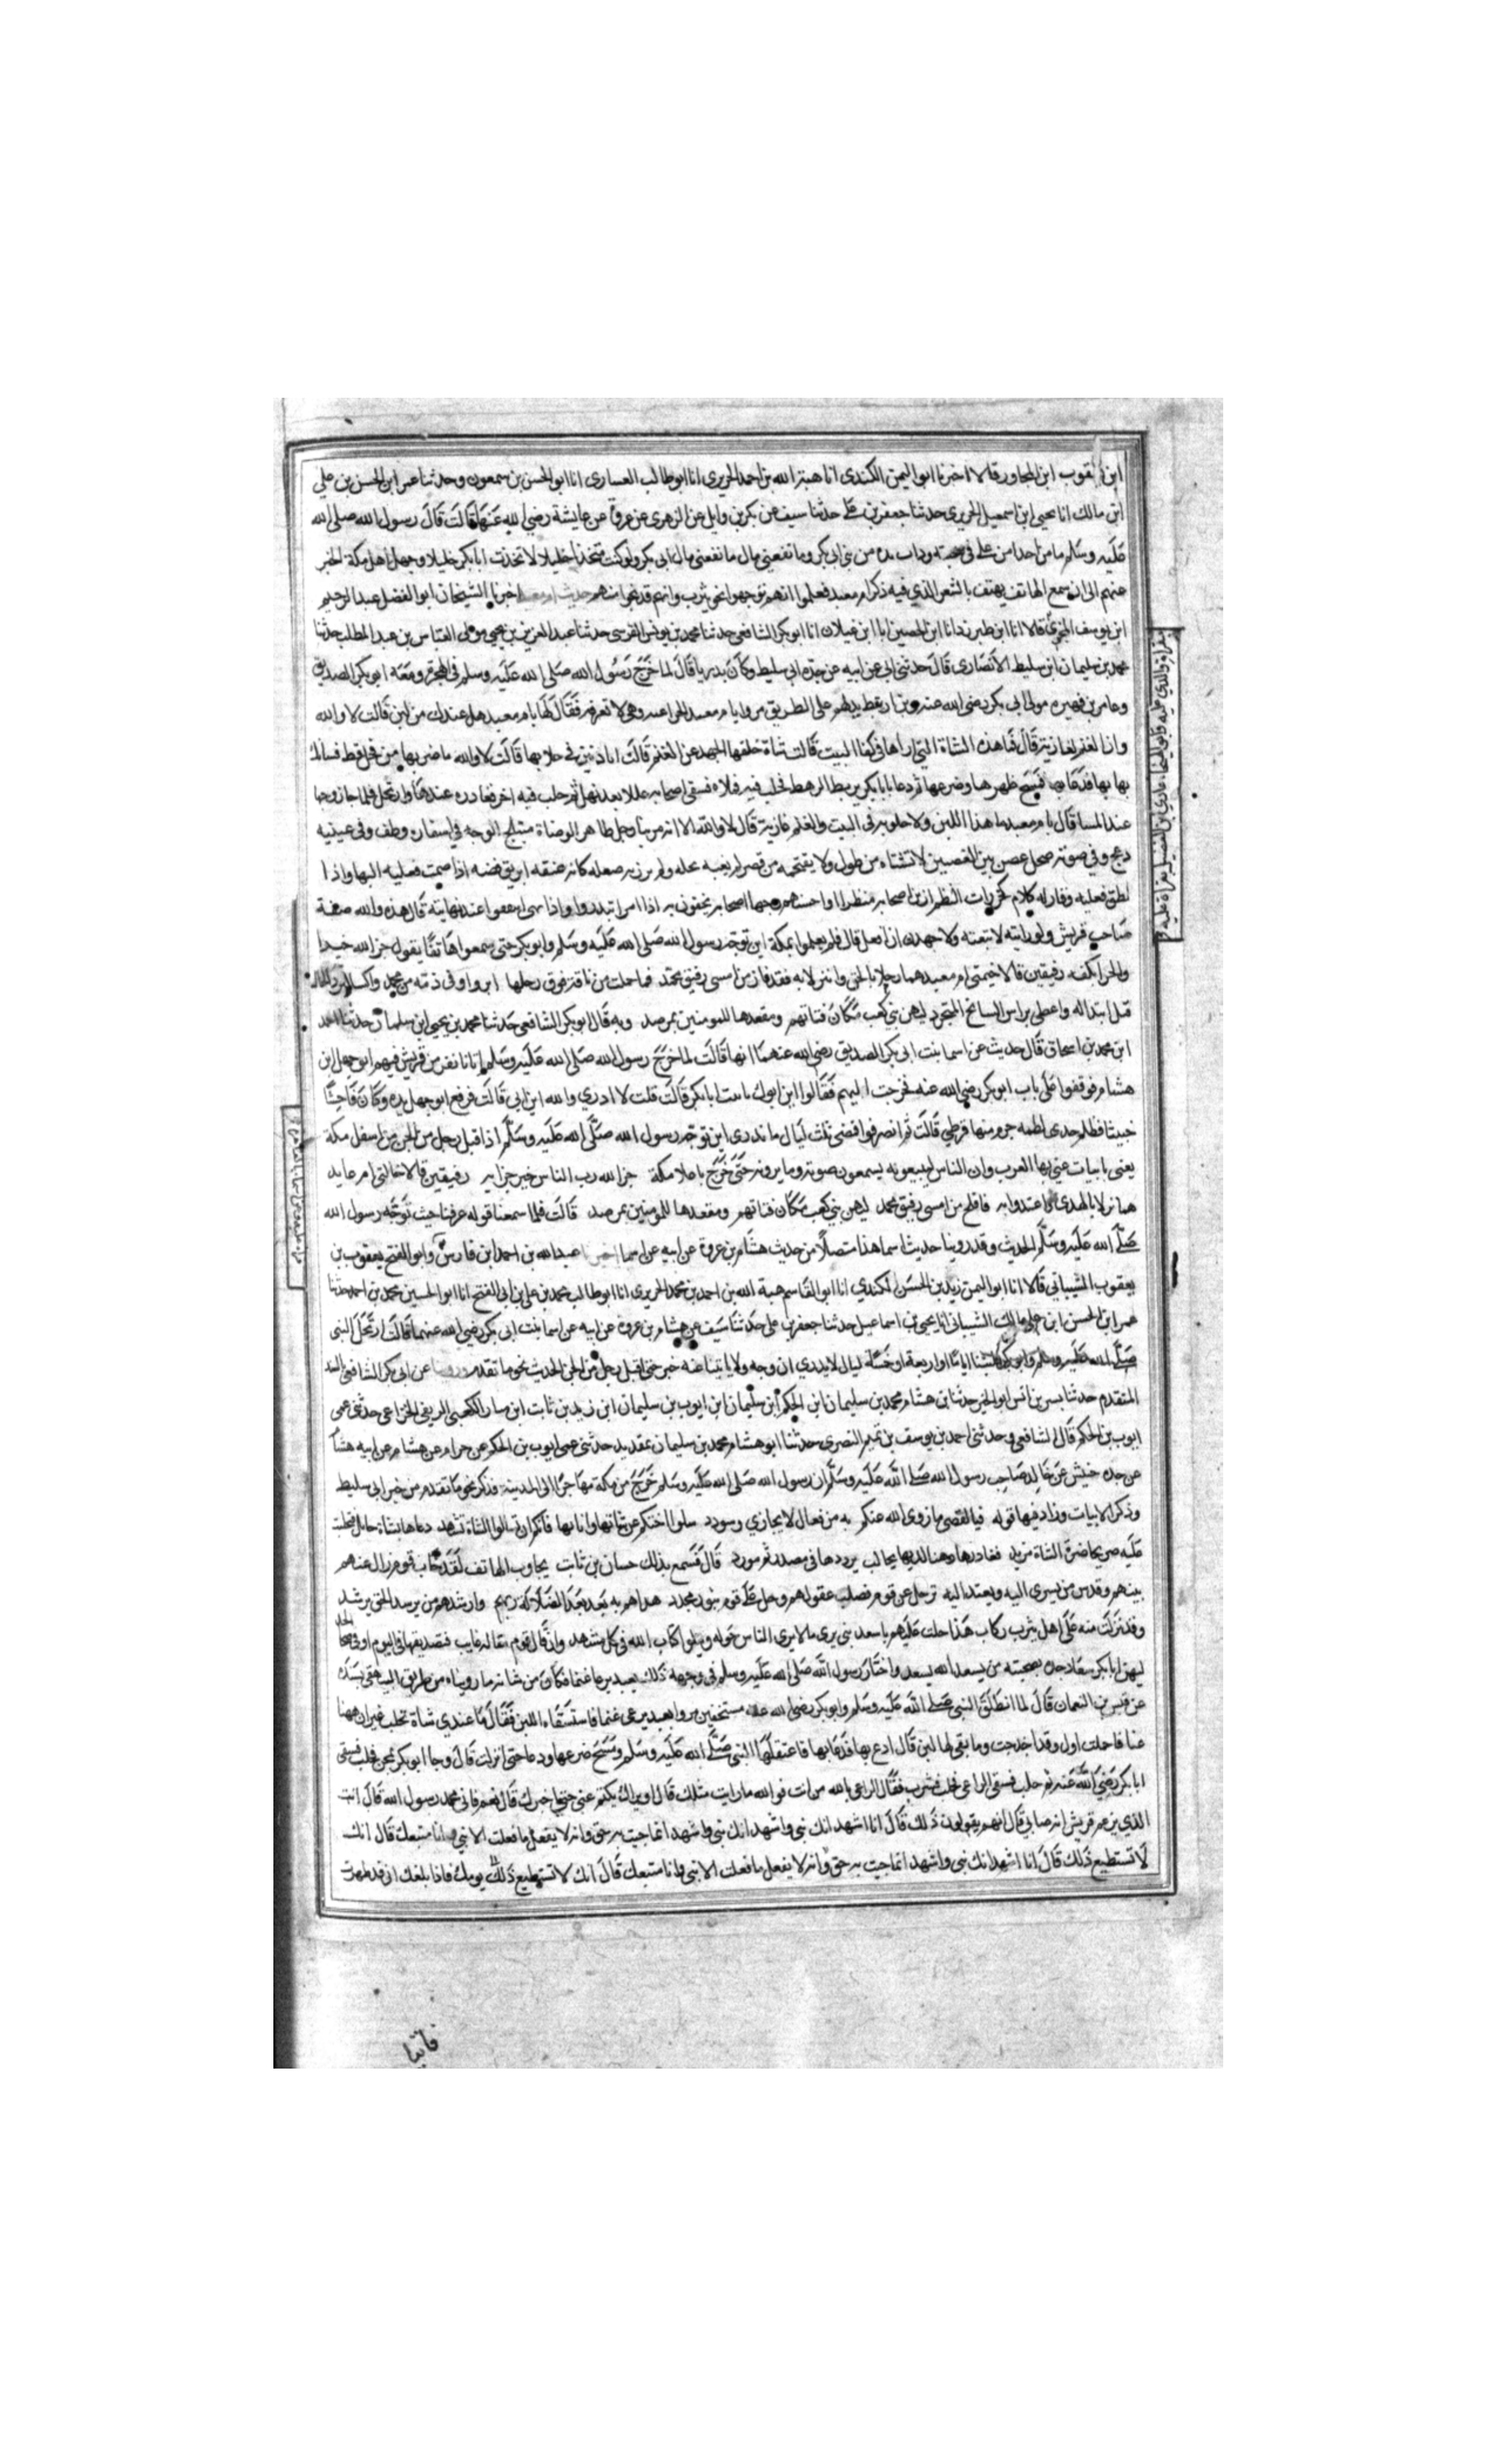 ابن يعقوب ابن المجاور قالا اخبرنا ابو اليمن الكندى انا هبة الله بن احمد الحريرى انا ابو طالب العسارى انا ابو الحسن بن سمعون وحدثنا عمر ابن الحسن بن علي
ابن مالك انا يحيى ابن اسمعيل الحريرى حدثنا جعفر بن على حدثنا سيف عن بكر بن وايل عن الزهرى عن عروة عن عايشة رضي الله عنها قالت قال رسول الله صلى الله
عليه وسلم ما من احد امن على في من بني ابى بكر وما نفعني مال ما نفعني مال ابي بكر ولو كنت متخذا خليلا لاتخذت ابا بكر خليلا وجهل اهل مكة الخبر
عنهم الى ان سمع الهاتف يهتف بالشعر الذي فيه ذكر ام معبد فعلموا انهم توجهوا نحو يثرب وانهم قد نجوا منهم حديث ام معبد اخبرنا الشيخان ابو الفضل عبد الرحيم
ابن يوسف قالا انا ابن طبرزد انا ابن الحصين انا ابن غيلان انا ابو بكر الشافعي حدثنا محمد بن يونس القرسى حدثنا عبد العزيز بن يحيى مولى العباس بن عبد المطلب حدثنا
محمد بن سليمان ابن سليط الانصارى قال حدثني ابي عن ابيه عن جده ابي سليط وكان بدريا قال لما خرج رسول الله صلى الله عليه وسلم في الهجرة ومعه ابو بكر الصديق
وعامر بن فهيره مولى ابي بكر رضى الله عنه وبن اريقط يدلهم على الطريق مروا بام معبد وهى لا تعرفه فقال لها يا ام معبد هل عندك من لبن قالت لا والله
وان الغنم لعازبة قال فما هذه الشاة التي اراها في كفا البيت قالت شاة خلفها الجهد عن الغنم قالت اتاذنين في حلابها قالت لا والله ما ضربها من فحل قط فسالك
بها بها فدعا بها فمسح ظهرها وضرعها ثم دعا باناء يربض الرهط فحلب فيه فملاه فسقى اصحابه عللا بعد نهل ثم حلب فيه اخر فغادره عندها وارتحل فلما جا زوجها
عند المسا قال يا ام معبد ما هذا اللبن ولا حلوبه في البيت والغنم عازبة قال لا والله الا انه مر بنا رجل ظاهر الوضاة متبلج الوجه في اسفاره وطف وفي عينيه
دعج وفي صوته صحل غصن بين الغصنين لا تشناه من طول ولا تقتحمه من قصر لم تعبه ولم تزر به صعله كان عنقه ابريق فضه اذا صمت فعليه البها واذا
نطق فعليه وقار له كلام كخرزات النظم ازين اصحابه منظرا واحسنهم وجها اصحابه يحفون به اذا امر ابتدروا واذا نهى عند نهايته قال هذه والله صفة
صاحب قريش ولو رايته لاتبعته ولاجهدن ان افعل قال فلم يعلموا بمكة اين توجه رسول الله صلى الله عليه وسلم وابو بكر حتى سمعوا هاتفا يقول جز الله خيرا
رفيقين قالا خيمتى ام معبد هما رحلا بالحق وانزلا به فقد فاز من امسى رفيق محمد فما حملت من ناقة فوق رحلها ابر واوفى ذمة من محمد واكسا
قبل ابتذاله واعطى براس السابح المتجرد ليهن بني كعب مكان فتاتهم ومقعدها للمومنين بمرصد وبه قال ابو بكر الشافعي حدثنا محمد بن يحيى ابن سليمان حدثنا احمد
ابن محمد بن اسحاق قال حديث عن اسما بنت ابى بكر الصديق رضى الله عنهما انها قالت لما خرج رسول الله صلى الله عليه وسلم اتانا نفر من قريش فيهم ابو جهل ابن
هشام فوقفوا على باب ابو بكر رضى الله عنه فخرجت اليهم فقالوا اين ابوك يا بنت ابا بكر قالت قلت لا ادري والله اين ابي قالت فرفع ابو جهل يده وكان فاحشا
خبيثا فلطم خدى لطمه خرم منها قرطي قالت ثم انصرفوا فمضى ثلث ليال ما ندرى اين توجه رسول الله صلى الله عليه وسلم اذا قبل رجل من الجن من اسفل مكة
يغنى بابيات غنى بها العرب وان الناس ليتبعونه يسمعون صوته وما يرونه حتى خرج باعلا مكة جز الله رب الناس خير جزايه رفيقين قالا خيمتى ام معبد
هما نزلا بالهدى واغتدوا به فافلح من امسى رفيق محمد ليهن بني كعب مكان فتاتهم ومقعدها للمومنين بمرصد قالت فلما سمعنا قوله عرفنا حيث توجه رسول الله
صلى الله عليه وسلم الحديث وقد روينا حديث اسما هذا متصلا من حديث هشام بن عروة عن ابيه عن اسما اخبرنا عبد الله بن احمد ابن فارس وابو الفتح يعقوب بن
يعقوب الشيباني قالا انا ابو اليمن زيد بن الحسن الكندي انا ابو القاسم هبة الله بن احمد بن محمد الحريرى انا ابو طالب محمد بن علي بن ابي الفتح انا ابو الحسين محمد بن احمد حدثنا
عمر ابن الحسن ابن على مالك الشيباني انا يحيى بن اسماعيل حدثنا جعفر بن على حدثنا سيف عن هشام بن عروة عن ابيه عن اسما بنت ابى بكر رضي الله عنهما قالت ارتحل النبى
صلى الله عليه وسلم وابو بكر فلبثنا اياما او اربعة او خمسة ليال لا ندرى اين وجه ولا ياتينا عنه خبر حتى اقبل رجل من الجن الحديث نحو ما تقدم وروينا عن ابى بكر الشافعي بالسند
المتقدم حدثنا بشر بن انس ابو الخير حدثنا بن هشام محمد بن سليمان ابن الحكم ابن سليمان ابن ايوب بن سليمان ابن زيد بن ثابت ابن سار الكعبى الربعى الخزاعي حدثني عمى
ايوب بن الحكم قال الشافعي وحدثني احمد بن يوسف بن تميم النصرى حدثنا ابو هشام محمد بن سليمان بقديد حدثني عمى ايوب بن الحكم عن حرام عن هشام عن ابيه هشام
عن جده حنيش عن خالد صاحب رسول الله صلى الله عليه وسلم ان رسول الله صلى الله عليه وسلم خرج من مكة مهاجرا الى المدينة فذكر نحو ما تقدم من خبر ابى سليط
وذكر الابيات وزاد فيها قوله فيا لقصي ما زوى الله عنكم به من فعال لا يجازي وسودد سلوا اختكم عن شاتها وانايها فانكم ان تسالوا الشاة تشهد دعاها بشاة حايل فتحلبت
عليه صريحا ضرة الشاة مزبد فغادرها رهنا لديها بحالب يرددها في مصدر ثم مورد قال فسمع بذلك حسان بن ثابت يجاوب الهاتف لقد خاب قوم زال عنهم
نبيهم وقدس من يسرى اليه ويعتدا اليه ترحل عن قوم فضلت عقولهم وحل على قوم بنور مجدد هداهم به بعد الضلالة ربهم وارشدهم من يرسد الحق يرشد
وقد نزلت منه على اهل يثرب ركاب هدا حلت عليهم باسعد نبى يرى مالا يرى الناس حوله ويتلوا كتاب الله في كل مشهد وان قال قوم مقاله غايب فتصديقها في اليوم او في ضحا الغد
ليهن ابا بكر سعادة جده بصحبته من يسعد الله يسعد واختار رسول الله صلى الله عليه وسلم في وجهه ذلك بعبد يرعا غنما فكان من شانه ما رويناه من طريق البيهقى بسنده
عن قيس بن النعمان قال لما انطلق النبى صلى الله عليه وسلم وابو بكر رضى الله عنه مستخفين مروا بعبد يرعى غنما فاستسقاه اللبن فقال ما عندي شاة تحلب غير ان ههنا
عناقا حملت اول وقد اخدجت وما بقى لها لبن قال ادع بها فدعا بها فاعتقلها النبى صلى الله عليه وسلم ومسح ضرعها ودعا حتى انزلت قال وجا ابو بكر بمجن فحلب فسقى
ابا بكر رضي الله عنه ثم حلب فسقى الراعى ثم حلب فشرب فقال الراعى بالله من انت فو الله ما رايت مثلك قال اوتراك تكتم عنى حتى اخبرك قال نعم فاني محمد رسول الله قال انت
الذي يزعم قريش انه صابي قال انهم يقولون ذلك قال انا اشهد انك نبى واشهد انما جيت به حق وانه لا يفعل ما فعلت الا نبى وانا متبعك قال انك
لا تستطيع ذلك قال انا اشهد انك نبى واشهد انما جيت به حق وانه لا يفعل ما فعلت الا نبى وانا متبعك قال انك لا تستطيع ذلك يومك فاذا بلغك انى قد ظهرت
فاتنا